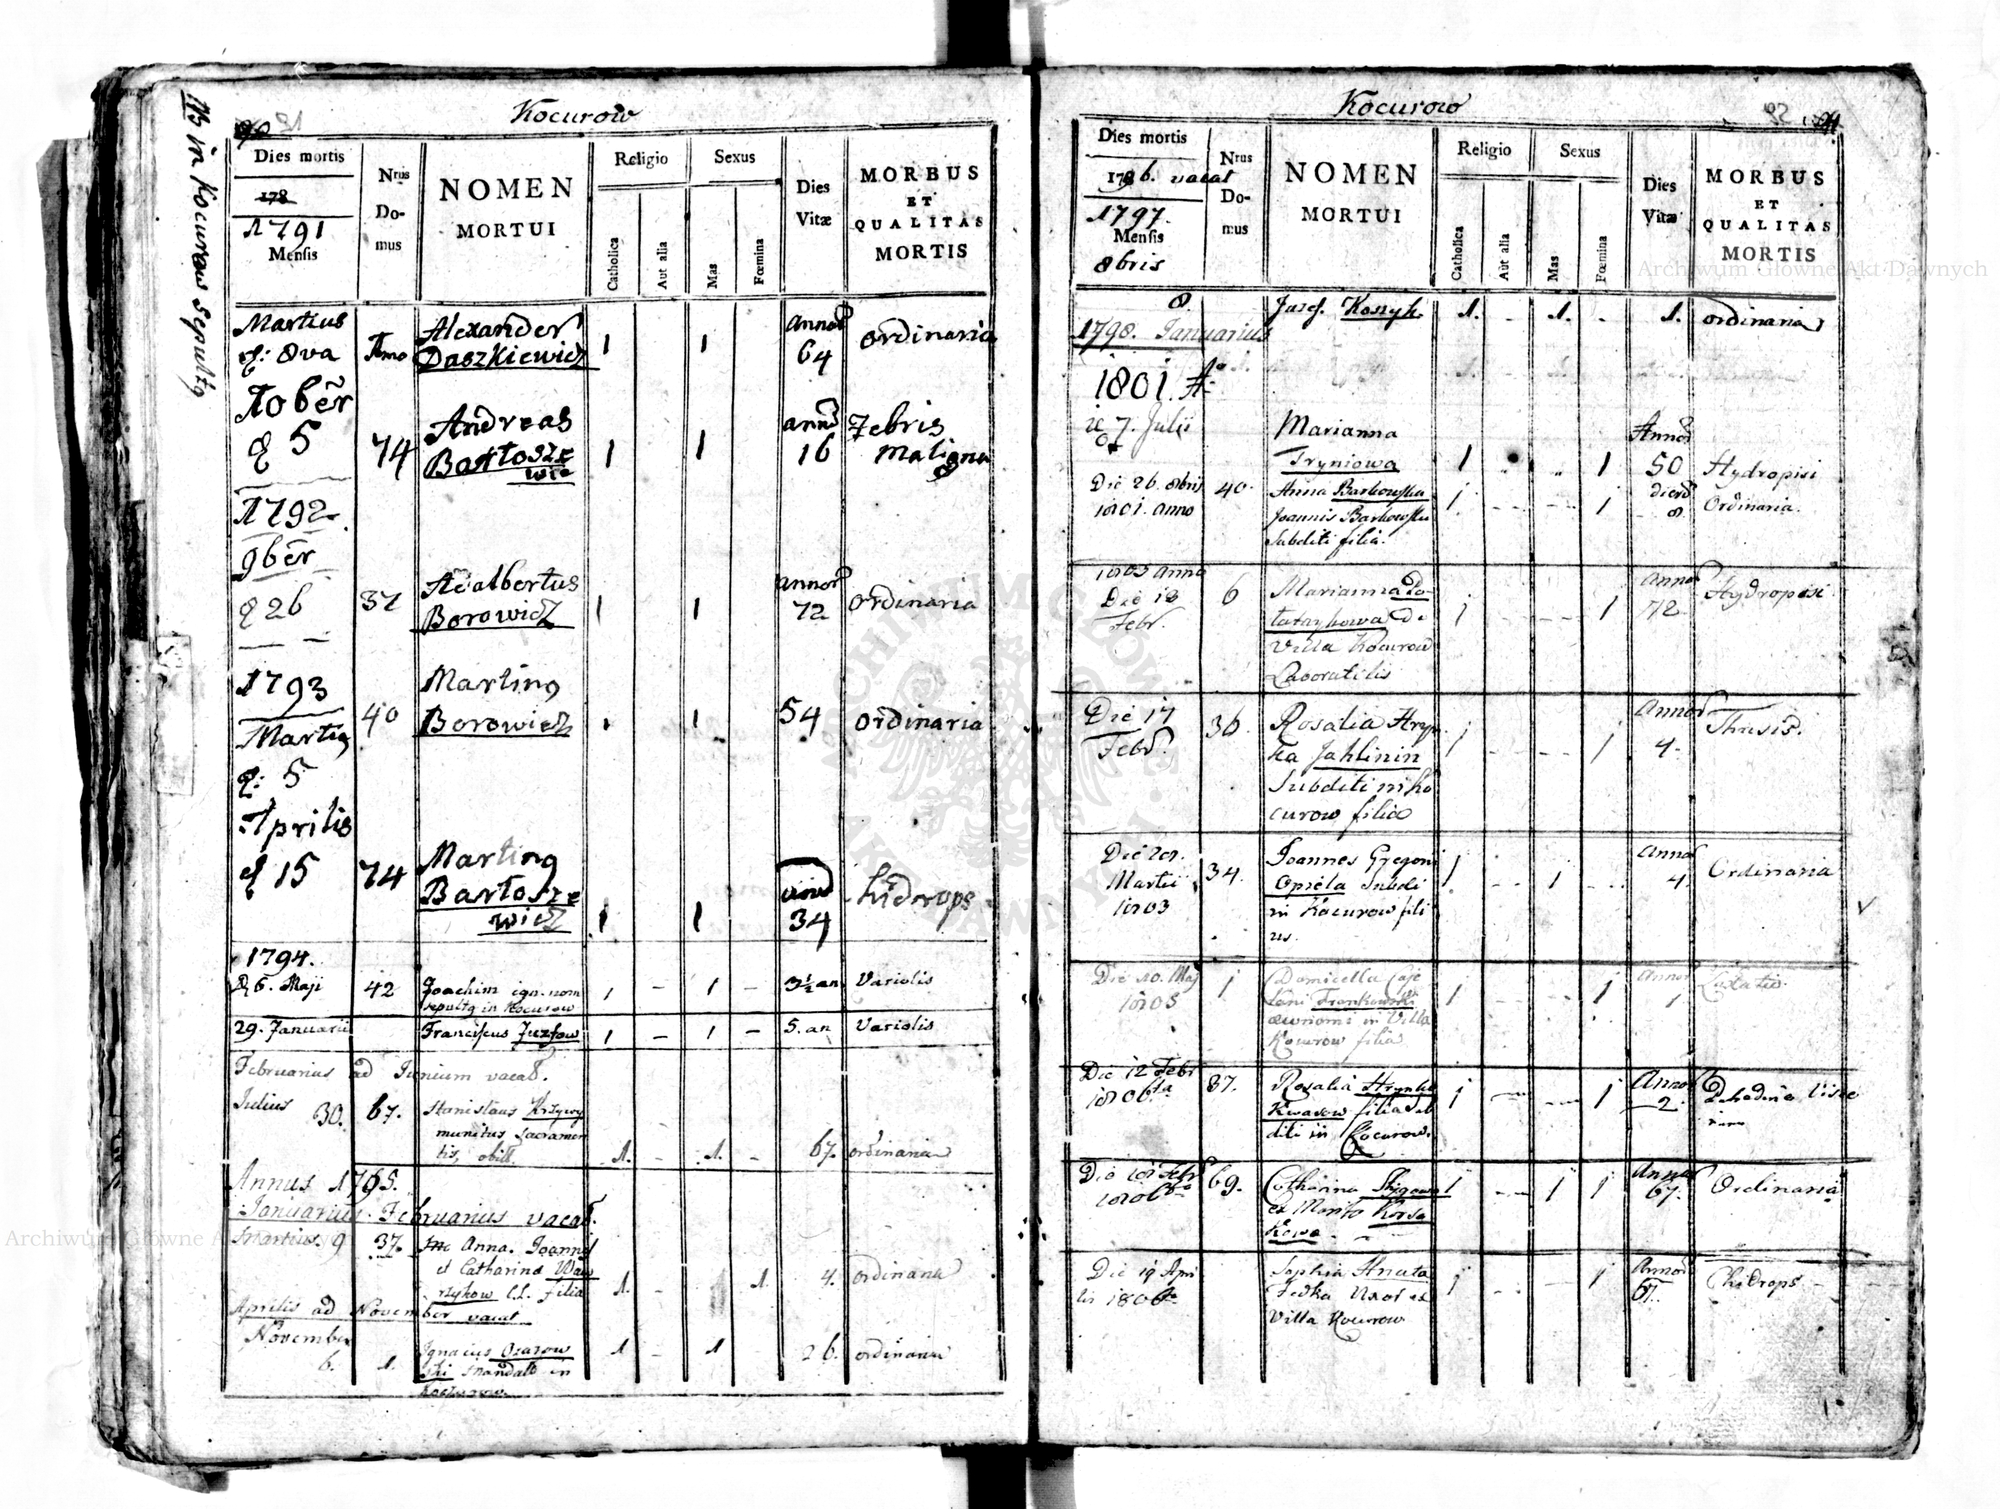 Kocurow
in Kocurow Sepultq
Dies mortis
178
1791
Mensis
Nrus
Do-
mus
NOMEN
MORTUI
Religio
Catholica
Aut alia
Sexus
Mas
Fœmina
Dies
Vitæ
MORBUS
ET
QUALITAS
MORTIS
Martius
8va
Alexander
Daszkiewicz
1
1
annor
64
ordinaria
10bēr
5
74
Andreas
Bartosze
wic
1
1
annor
16
Febris
maligna
1792
9bēr
26
37
Adalbertus
Borowicz
1
1
annor
72
ordinaria
1793
Martiq
5
40
Martinq
Borowicz
1
1
54
ordinaria
Aprilis
15
74
Martinq
Bartosze
wicz
1
1
34
hidrops
1794.
6. Maji
42
Joachim ign. nom
sepultq in Kocurow
1
-
1
-
3½ an
Variolis
29. Januarii
Franciscus Juzkow
1
-
1
-
5. an
Variolis
Februarius ad Junium vacat.
Julius
30.
67.
Stanislaus Krzywy
munitus sacramen
tis, obiit.
1.
-
1.
-
67.
ordinaria
Annus 1795.
Januarius. Februarius vacat.
Martius. 9
37.
Anna. Joannis
et Catharina
filia
1.
-
1.
4.
ordinaria
Aprilis ad November vacat
November
6.
1.
Ignacius Ozarow
ski in
Kocurow.
1
-
1
26.
ordinaria
Kocurow
Dies mortis
1796. vacat
1797.
Mensis
8bris
Nrus
Do-
mus
NOMEN
MORTUI
Religio
Catholica
Aut alia
Sexus
Mas
Fœmina
Dies
Vitæ
MORBUS
ET
QUALITAS
MORTIS
8.
Jusef. Koszyk.
1.
1.
1.
ordinaria
1798. Januarius
1801. A
7. Julii
Marianna
Tryniowa
1
1
Annor
50
Hydropisi
Die 26. 8bris
1801. anno
40.
Anna Barkowska
Joannis Barkowski
Subditi filia.
1
1
dierum
8.
Ordinaria.
1803 anno
Die 18
Febr.
6
Marianna
de
Villa Kocurow
Laboratilis
1
1
Anno
72
Hydropisi
Die 17
Febr.
36.
Rosalia Hryn
ka
Subditi in Ko
curow filia
1
1
Annor
4.
Thisis.
Martii
1803
34.
Joannes Gregori
Opiela Subdi
in Kocurow fili
us.
1
1
Anno
4.
Ordinaria
Die 10. Maj
1803
1
Domicella
lani Frankowski
œconomi in Villa
Kocurow filia
1
1
Anno
1
Die 12 Febr
1806ta
37.
Rosalia Hrynko
Kwasow filia Sub
diti in Kocurow.
1
1
Anno
2.
Die 18 Febr
69.
Catharina
ex Marito Korsa
kowa
1
1
1
Anno
67.
Ordinaria
Die 19 Apri
lis 1806ta
Sophia Hnata
Fedka Uxor ex
Villa Kocurow
1
1
Annor
Chidrops
Archiwum Główne Akt Dawnych
Archiwum Główne Akt Dawnych
ARCHIWUM GŁÓWNE AKT DAWNYCH